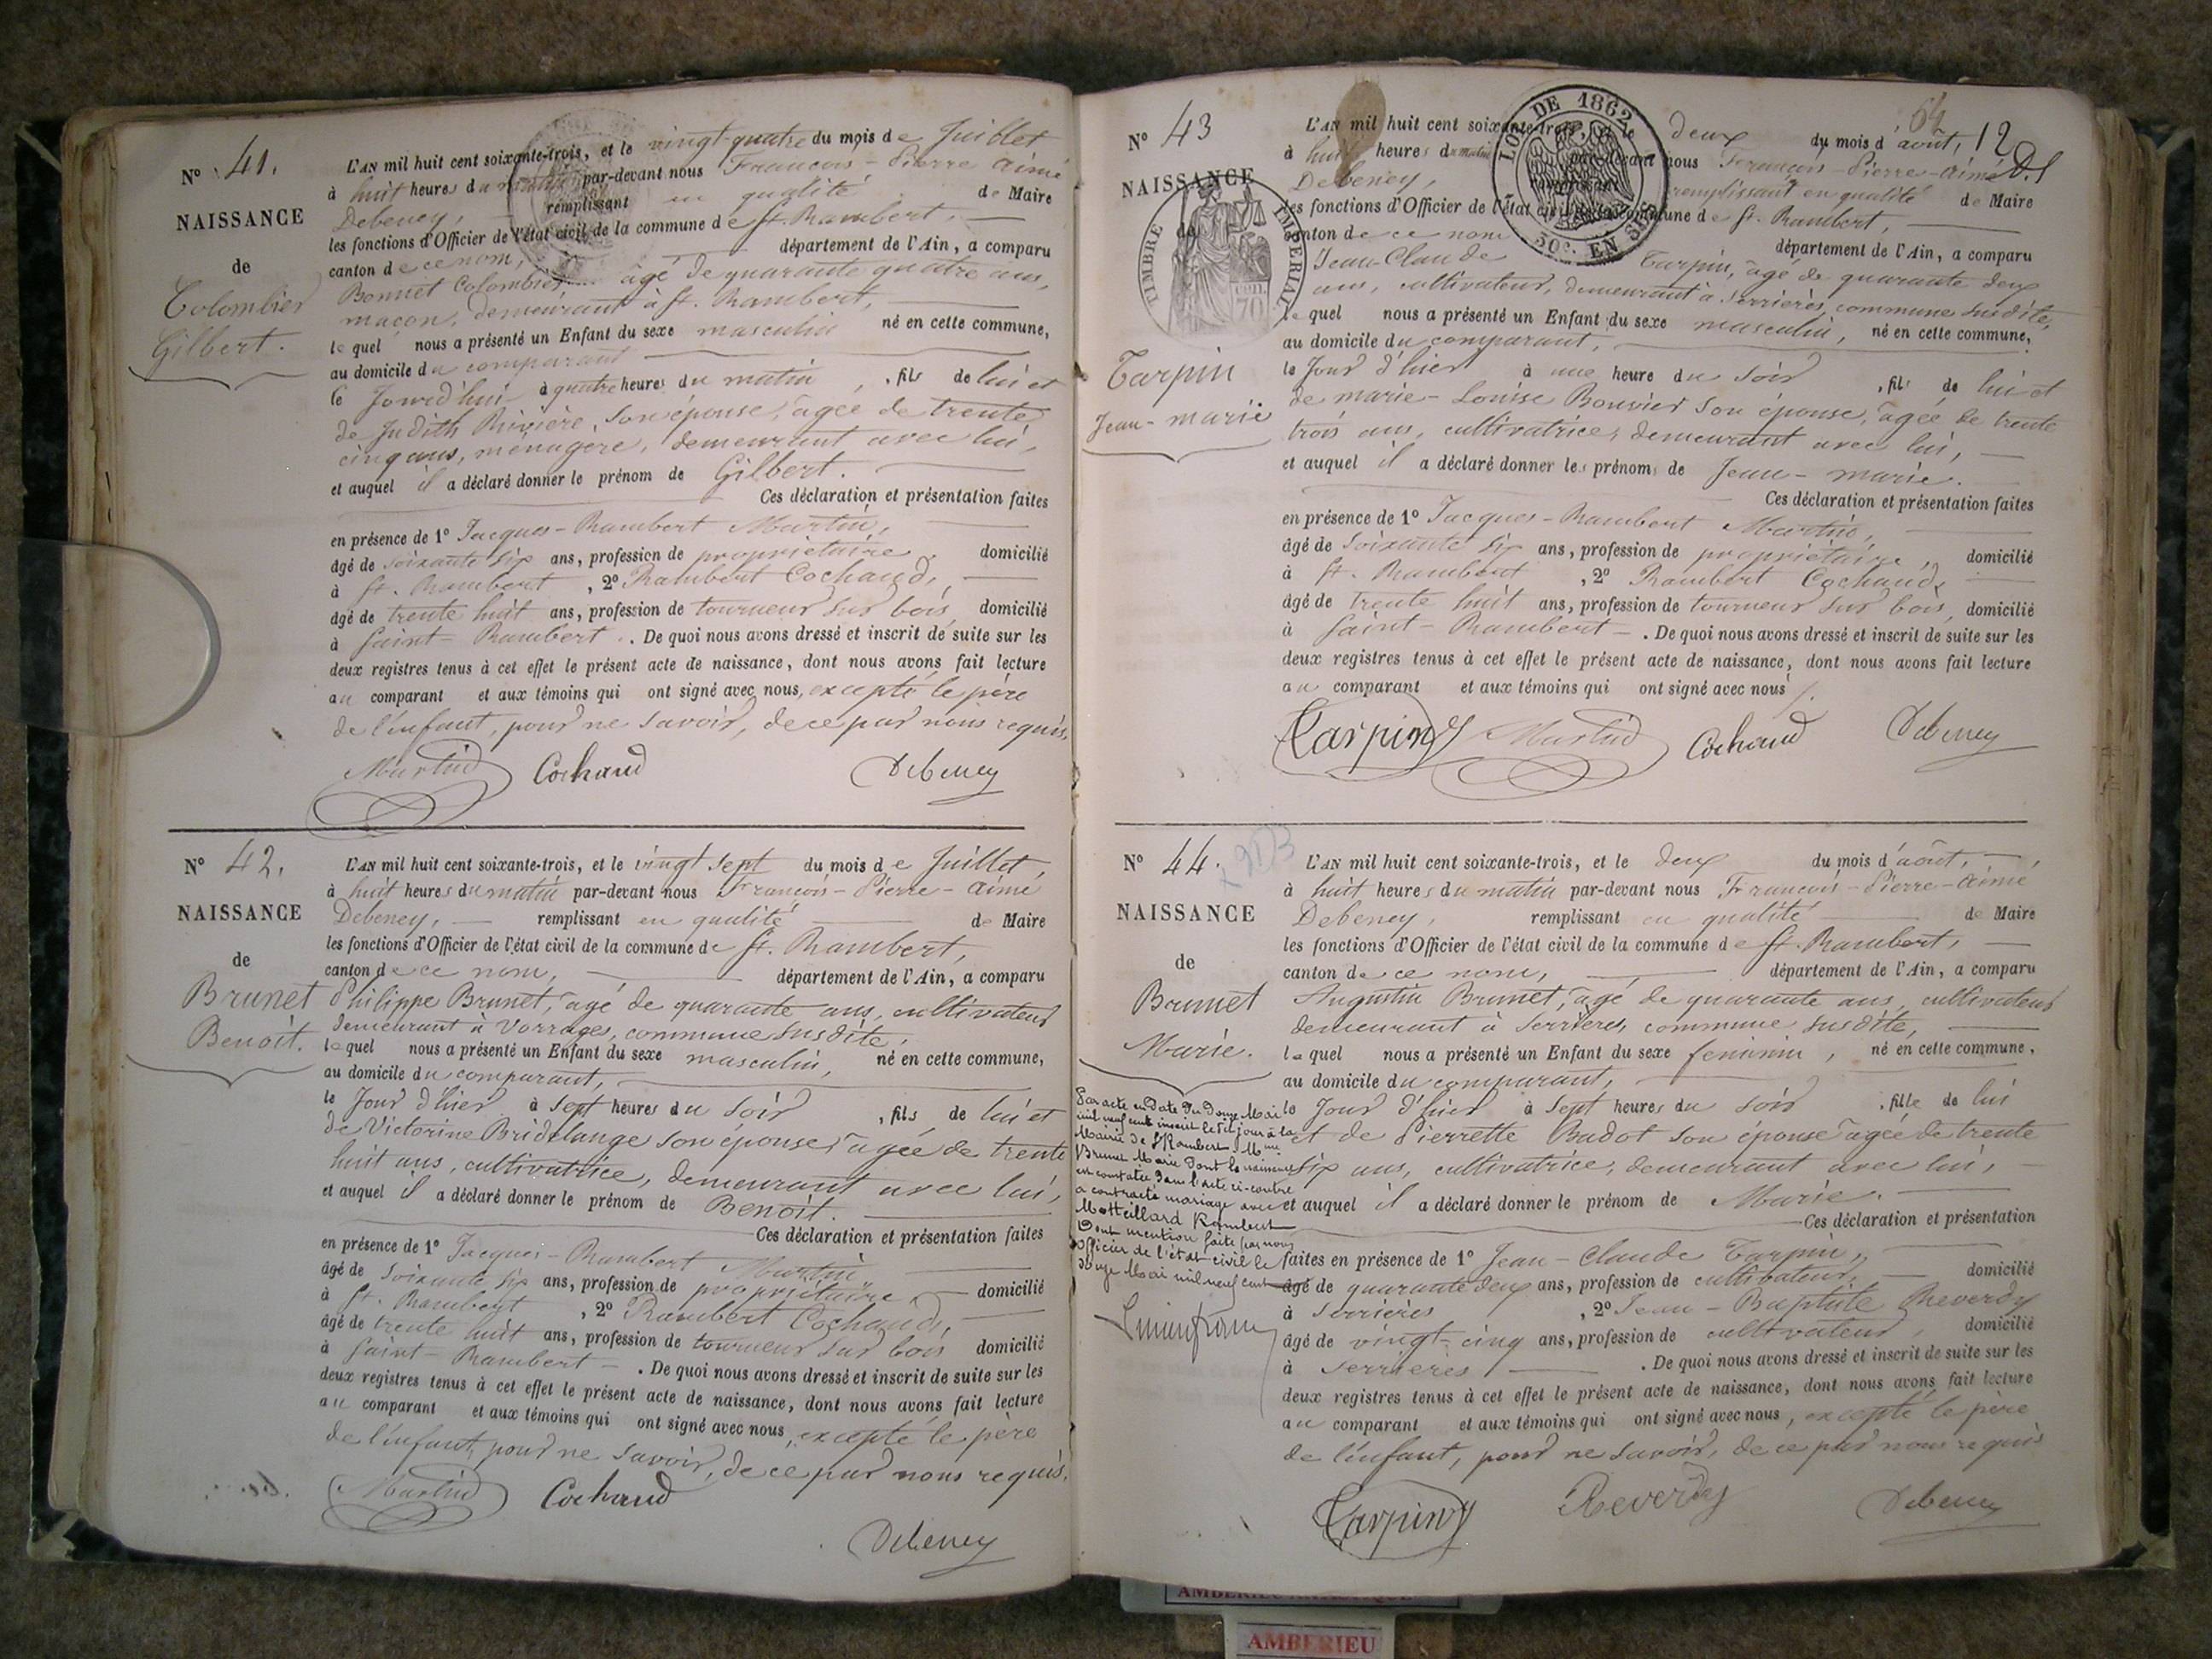 N° 41.
NAISSANCE
de
Colombier
Gilbert.
L'AN mil huit cent soixante-trois, et le vingt quatre du mois de Juillet
à huit heures du matin par-devant nous François-Pierre Aimé
Debeney, remplissant en qualité de Maire
les fonctions d'Officier de l'état civil de la commune de St. Rambert,
canton de ce nom, département de l'Ain, a comparu
Bonnet Colombier âgé de quarante quatre ans,
maçon, demeurant à St. Rambert,
lequel nous a présenté un Enfant du sexe masculin né en cette commune,
au domicile du comparant
le Jourd'hui à quatre heures du matin, fils de lui et
de Judith Rivière, son épouse, âgée de trente
cinq ans, ménagère, demeurant avec lui,
et auquel il a déclaré donner le prénom de Gilbert.
Ces déclaration et présentation faites
en présence de 1° Jacques-Rambert Martin,
âgé de soixante six ans, profession de propriétaire, domicilié
à St. Rambert, 2° Rambert Cochaud,
âgé de trente huit ans, profession de tourneur sur bois, domicilié
à Saint-Rambert. De quoi nous avons dressé et inscrit de suite sur les
deux registres tenus à cet effet le présent acte de naissance, dont nous avons fait lecture
au comparant et aux témoins qui ont signé avec nous, excepté le père
de l'enfant, pour ne savoir, de ce par nous requis,
Martin Cochaud Debeney
N° 42.
NAISSANCE
de
Brunet
Benoit.
L'AN mil huit cent soixante-trois, et le vingt sept du mois de Juillet,
à huit heures du matin par-devant nous François-Pierre-Aimé
Debeney, remplissant en qualité de Maire
les fonctions d'Officier de l'état civil de la commune de St. Rambert,
canton de ce nom, département de l'Ain, a comparu
Philippe Brunet, âgé de quarante ans, cultivateur
demeurant à Vorrages, commune susdite,
lequel nous a présenté un Enfant du sexe masculin, né en cette commune,
au domicile du comparant,
le Jour d'hier à sept heures du soir, fils de lui et
de Victorine Bridelange son épouse, âgée de trente
huit ans, cultivatrice, demeurant avec lui,
et auquel il a déclaré donner le prénom de Benoit.
Ces déclaration et présentation faites
en présence de 1° Jacques-Rambert Martin
âgé de soixante six ans, profession de propriétaire, domicilié
à St. Rambert, 2° Rambert Cochaud,
âgé de trente huit ans, profession de tourneur sur bois domicilié
à Saint-Rambert. De quoi nous avons dressé et inscrit de suite sur les
deux registres tenus à cet effet le présent acte de naissance, dont nous avons fait lecture
au comparant et aux témoins qui ont signé avec nous, excepté le père
de l'enfant, pour ne savoir, de ce par nous requis.
Martin Cochaud
Debeney
64
12
N° 43
NAISSANCE
de
TIMBRE IMPERIAL
LOI DE 1862
50c. EN SUS
Tarpin
Jean-Marie
L'AN mil huit cent soixante-trois, et le deux du mois d'août,
à huit heures du matin par-devant nous François-Pierre-Aimé
Debeney, remplissant remplissant en qualité de Maire
les fonctions d'Officier de l'état civil de la commune de St. Rambert,
canton de ce nom département de l'Ain, a comparu
Jean-Claude Tarpin, âgé de quarante deux
ans, cultivateur, demeurant à Serrières, commune susdite,
lequel nous a présenté un Enfant du sexe masculin, né en cette commune,
au domicile du comparant,
le Jour d'hier à une heure du soir, fils de lui et
de Marie-Louise Bouvier son épouse, âgée de trente
trois ans, cultivatrice, demeurant avec lui,
et auquel il a déclaré donner les prénoms de Jean-Marie.
Ces déclaration et présentation faites
en présence de 1° Jacques-Rambert Martin,
âgé de soixante six ans, profession de propriétaire, domicilié
à St. Rambert, 2° Rambert Cochaud,
âgé de trente huit ans, profession de tourneur sur bois, domicilié
à Saint-Rambert. De quoi nous avons dressé et inscrit de suite sur les
deux registres tenus à cet effet le présent acte de naissance, dont nous avons fait lecture
au comparant et aux témoins qui ont signé avec nous
Tarpin Martin Cochaud Debeney
N° 44.
NAISSANCE
de
Brunet
Marie.
Par acte en date du douze Mai
mil neuf cent inscrit le dit jour à la
Mairie de St Rambert Mme
Brunet Marie dont la naissance
est constatée dans l'acte ci-contre
a contracté mariage avec
Motteillard Rambert
Dont mention faite par nous
officier de l'état civil le
douze Mai mil neuf cent
L'AN mil huit cent soixante-trois, et le deux du mois d'août,
à huit heures du matin par-devant nous François-Pierre-Aimé
Debeney, remplissant en qualité de Maire
les fonctions d'Officier de l'état civil de la commune de St. Rambert,
canton de ce nom, département de l'Ain, a comparu
Augustin Brunet, âgé de quarante ans, cultivateur
demeurant à Serrières, commune susdite,
lequel nous a présenté un Enfant du sexe feminin, né en cette commune,
au domicile du comparant,
le Jour d'hier à sept heures du soir, fille de lui
et de Pierrette Budot son épouse âgée de trente
six ans, cultivatrice, demeurant avec lui,
et auquel il a déclaré donner le prénom de Marie.
Ces déclaration et présentation
faites en présence de 1° Jean-Claude Tarpin,
âgé de quarante deux ans, profession de cultivateur, domicilié
à Serrières, 2° Jean-Baptiste Reverdy
âgé de vingt-cinq ans, profession de cultivateur, domicilié
à Serrières. De quoi nous avons dressé et inscrit de suite sur les
deux registres tenus à cet effet le présent acte de naissance, dont nous avons fait lecture
au comparant et aux témoins qui ont signé avec nous, excepté le père
de l'enfant, pour ne savoir, de ce par nous requis
Tarpin Reverdy Debeney
AMBERIEU
AMBERIEU